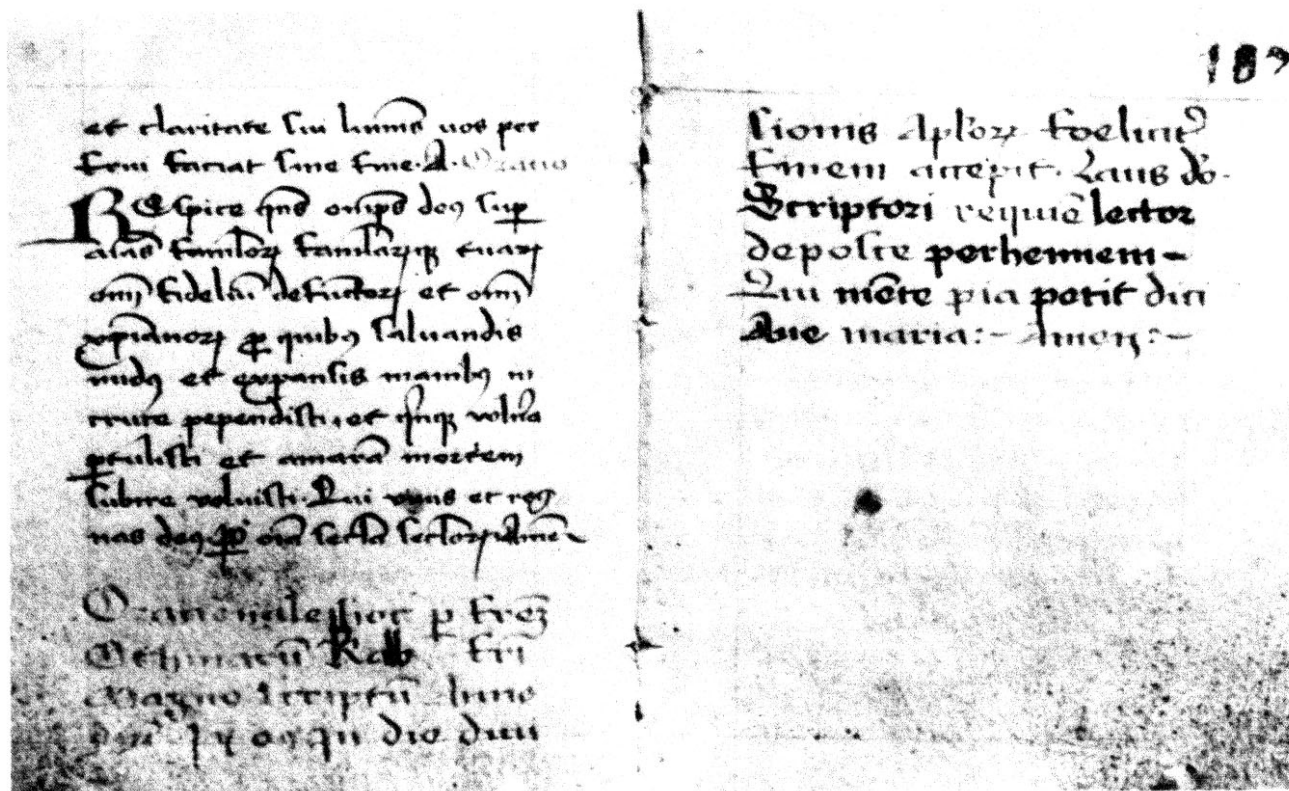 et claritate sui luminis vos per
frui faciat sine fine. A. Oratio
REspice qs omps deq sup
aīas famulorꝝ famularꝝq tuarꝝ
oīm fideliū defūctorꝝ et oīm
xpianorꝝ ꝓ quibꝯ saluandis
nudꝯ et expansis manibꝯ in
cruce pependisti, et qnq vulnera
ptulisti et amarā mortem
subire voluisti. Qui viuis et reg
nas deꝯ p oīa secla seclorꝝ Amen
Orationale hoc p frem
Othmarū fri
Magno scriptū Anno
dni die diui
189
sionis Aplorꝝ foeliciter
finem accepit. Laus do.
Scriptori requiē lector
deposce perhennem-
Qui mēte pia petit dici
Aue maria:- Amen:-